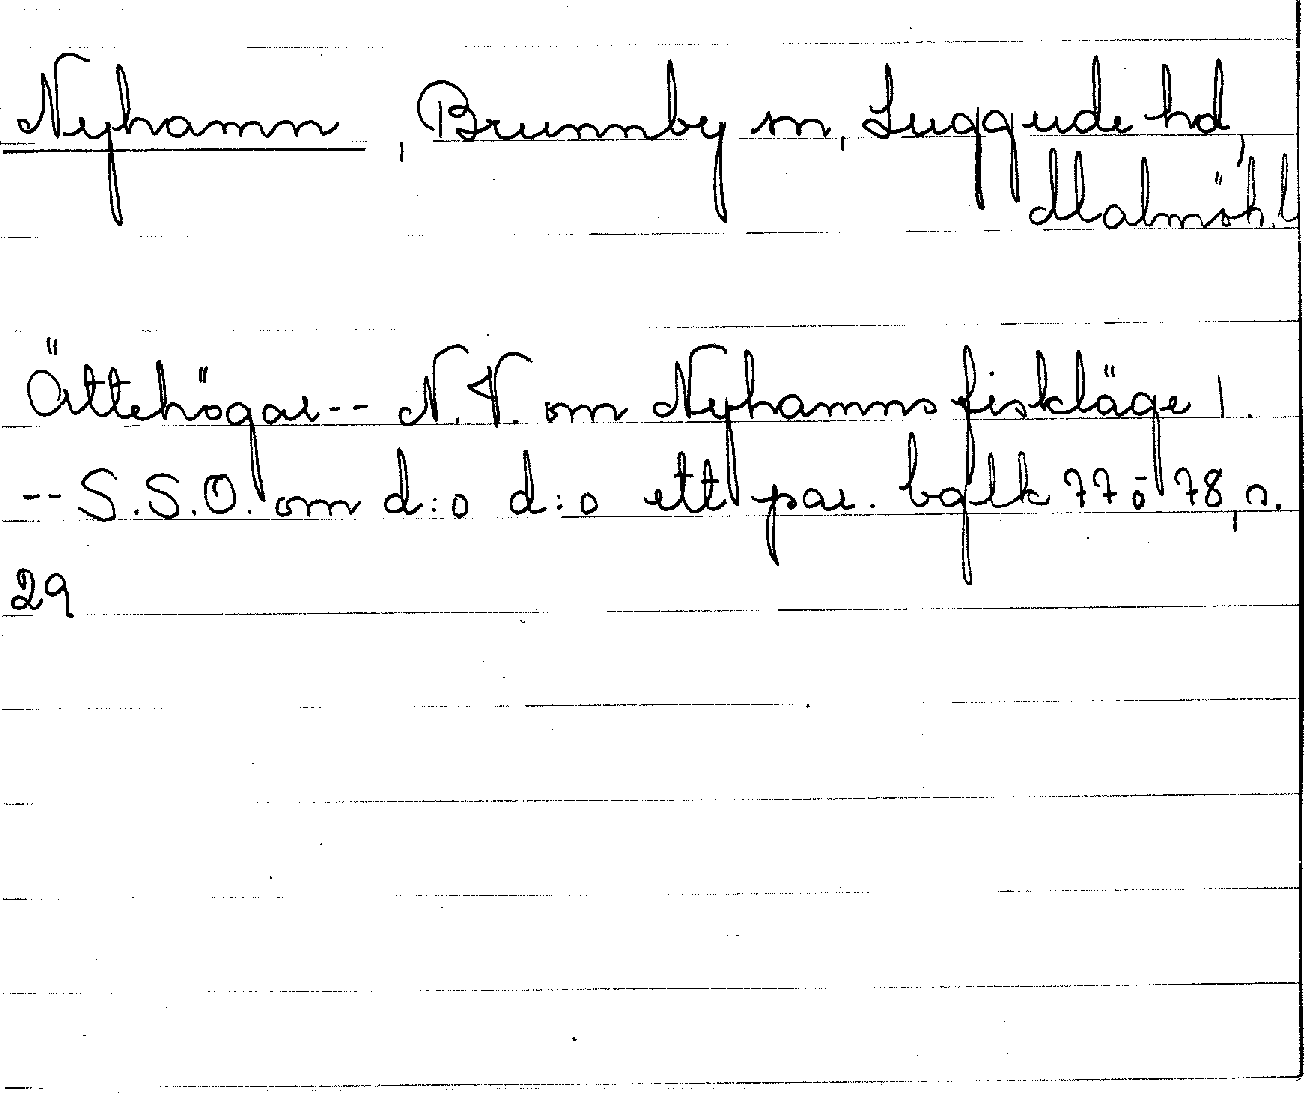 Nyhamn, Brunnby sn, Luggude hd,
Malmöh. l
Ättehögar -- N.V. om Nyhamns fiskläge 1.
-- S.S.O. om d:o d:o ett par. bqlk 77 ö 78, s.
29